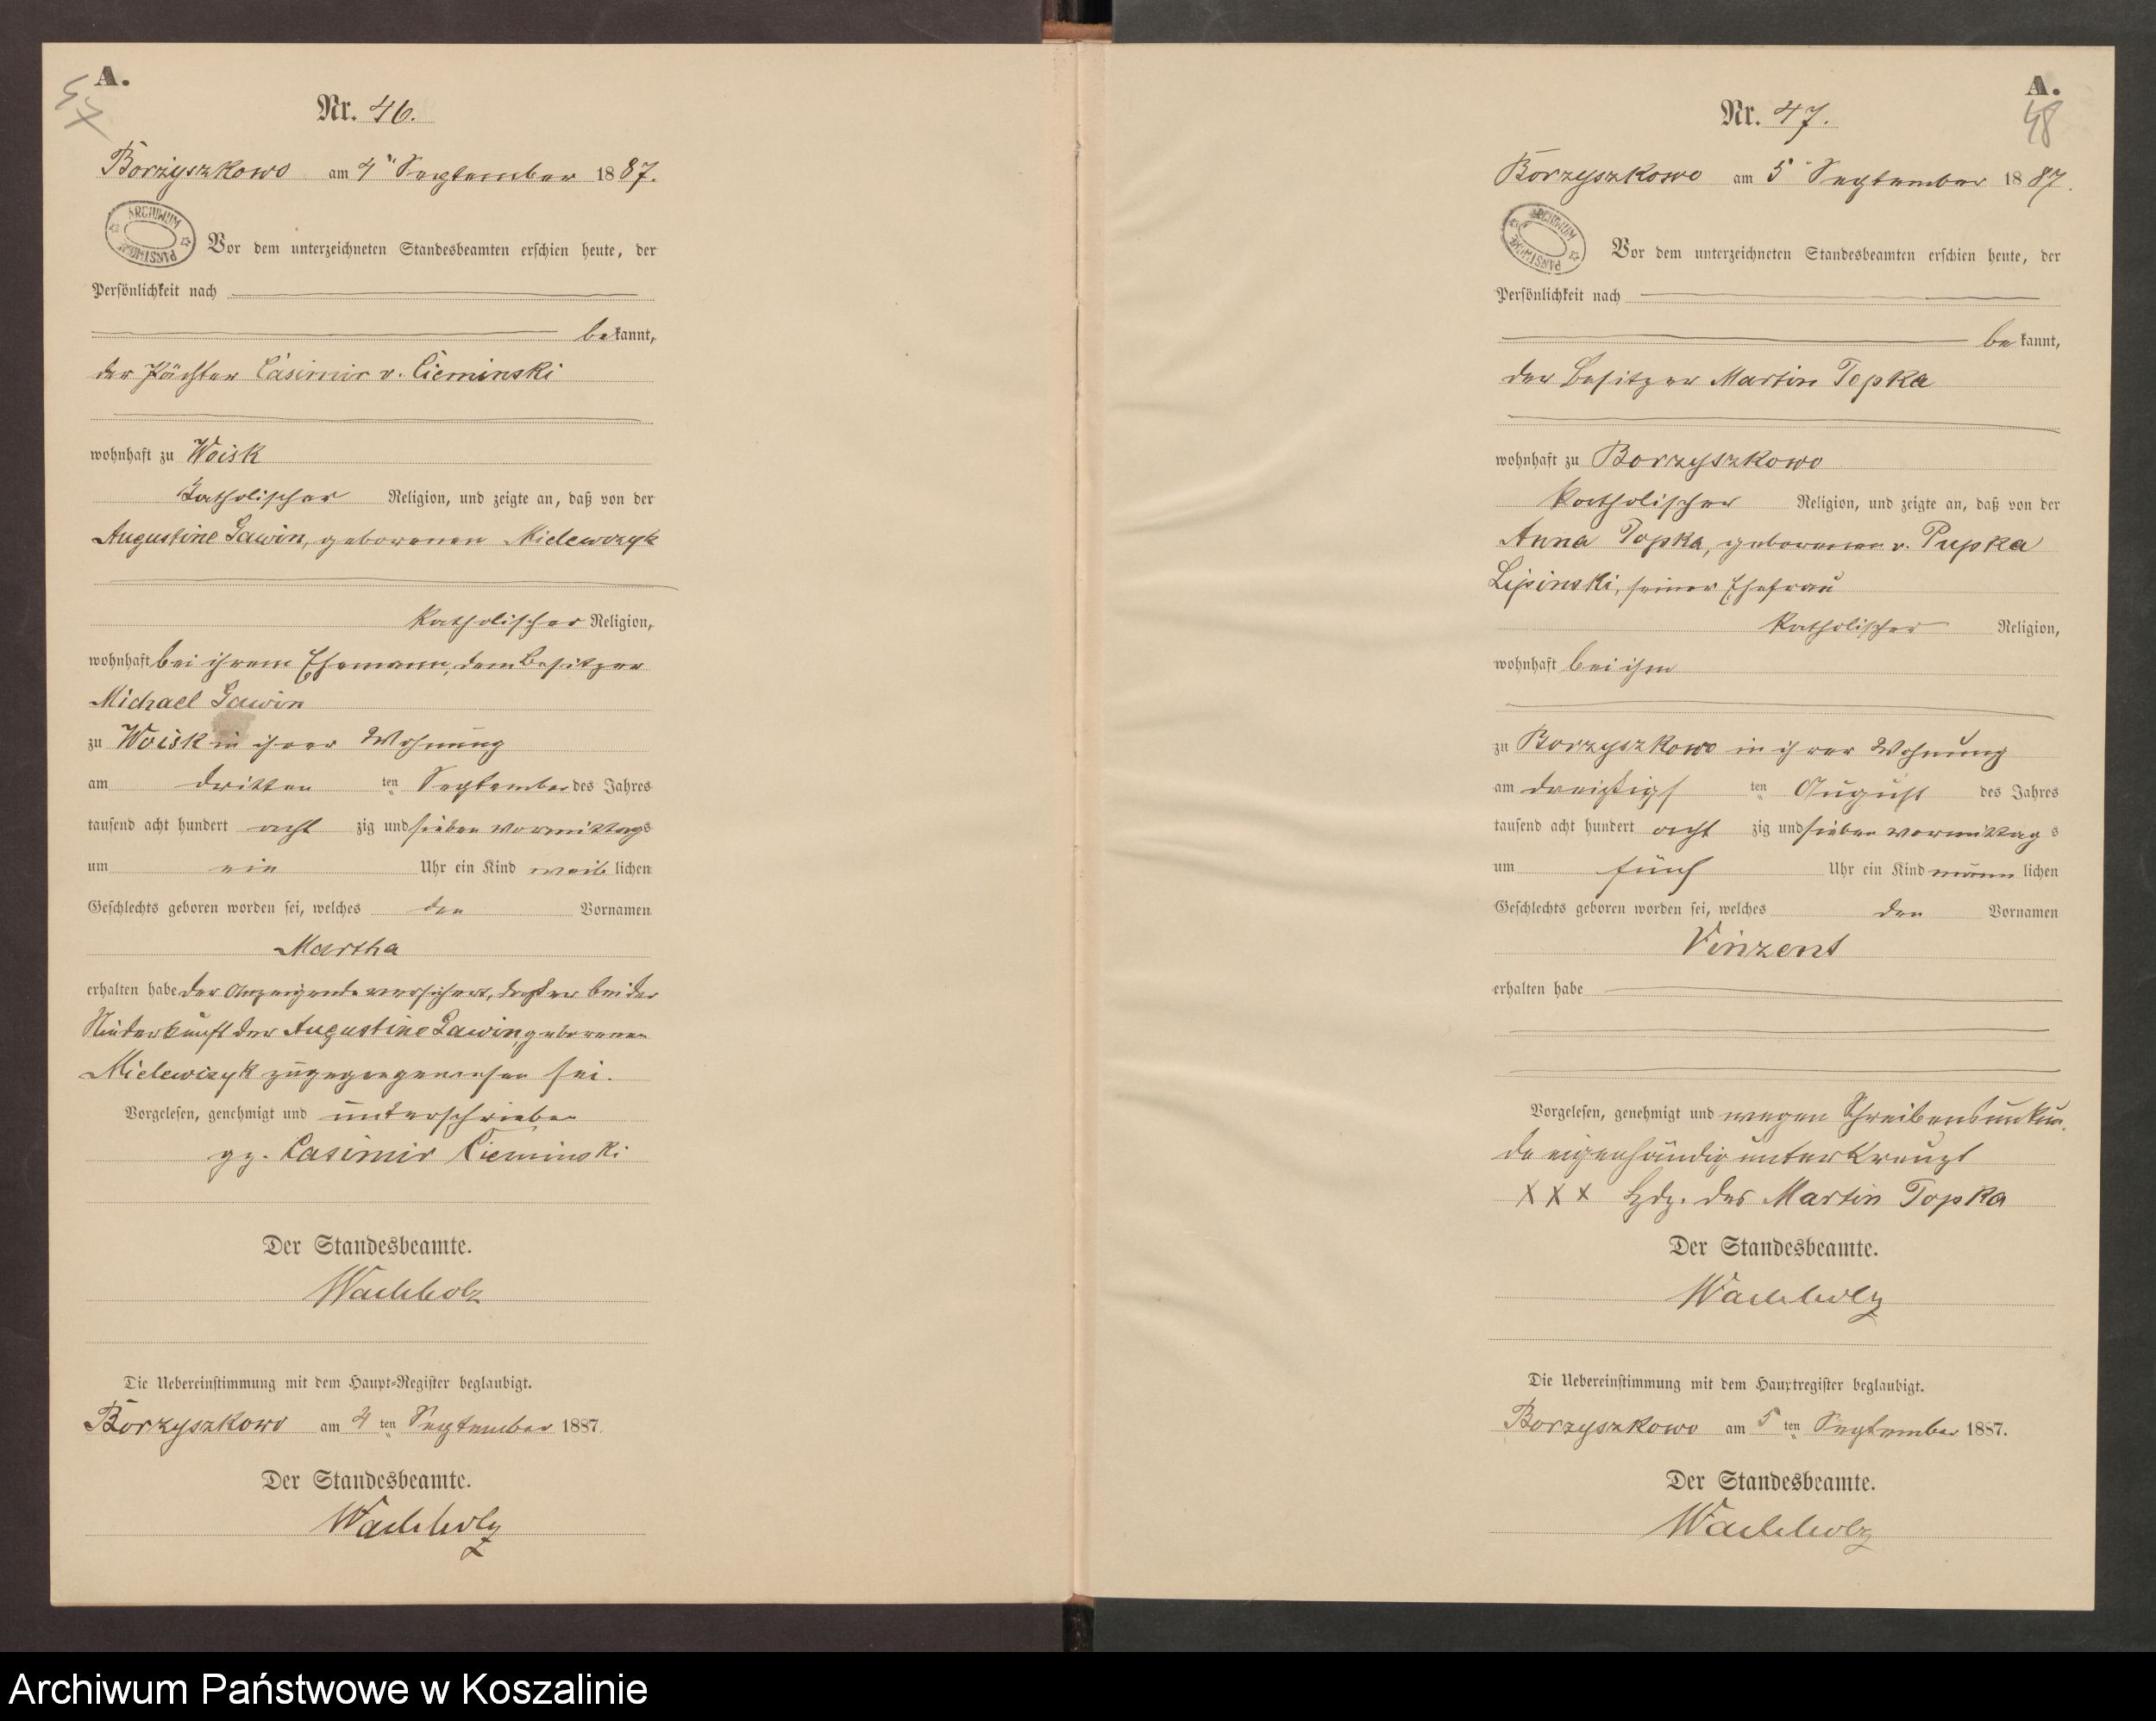 A.
47
Nr. 46.
Borzyszkowo am 4" September 1887.
ARCHIWUM PAŃSTWOWE
Vor dem unterzeichneten Standesbeamten erschien heute, der
Persönlichkeit nach
bekannt,
der Pächter Casimir v. Cieminski
wohnhaft zu Woisk
katholischer Religion, und zeigte an, daß von der
Augustine Gawin, geborenen Mielewczyk
katholischer Religion,
wohnhaft bei ihrem Ehemann, dem Besitzer
Michael Gawin
zu Woisk in ihrer Wohnung
am dritten ten September des Jahres
tausend acht hundert acht zig und sieben vormittags
um ein Uhr ein Kind weib lichen
Geschlechts geboren worden sei, welches den Vornamen
Martha
erhalten habe der Anzeigende versichert, daß er bei der
Niederkunft der Augustine Gawin, geborenen
Mielewczyk zugegen gewesen sei.
Vorgelesen, genehmigt und unterschrieben
gz. Casimir Cieminski
Der Standesbeamte.
Wachholz
Die Uebereinstimmung mit dem Haupt-Register beglaubigt.
Borzyszkowo am 4 ten September 1887.
Der Standesbeamte.
Wachholz
A.
48
Nr. 47.
Borzyszkowo am 5" September 1887.
ARCHIWUM PAŃSTWOWE
Vor dem unterzeichneten Standesbeamten erschien heute, der
Persönlichkeit nach
be kannt,
der Besitzer Martin Topka
wohnhaft zu Borzyszkowo
katholischer Religion, und zeigte an, daß von der
Anna Topka, geborenen v. Pupka
Lipinski, seiner Ehefrau
katholischer Religion,
wohnhaft bei ihm
zu Borzyszkowo in ihrer Wohnung
am dreißigs ten August des Jahres
tausend acht hundert acht zig und sieben vormittag s
um fünf Uhr ein Kind männ lichen
Geschlechts geboren worden sei, welches den Vornamen
Vinzent
erhalten habe
Vorgelesen, genehmigt und wegen Schreibensunkun-
de eigenhändig unterkreuzt
XXX Hdz. des Martin Topka
Der Standesbeamte.
Wachholz
Die Uebereinstimmung mit dem Hauptregister beglaubigt.
Borzyszkowo am 5 ten September 1887.
Der Standesbeamte.
Wachholz
Archiwum Państwowe w Koszalinie